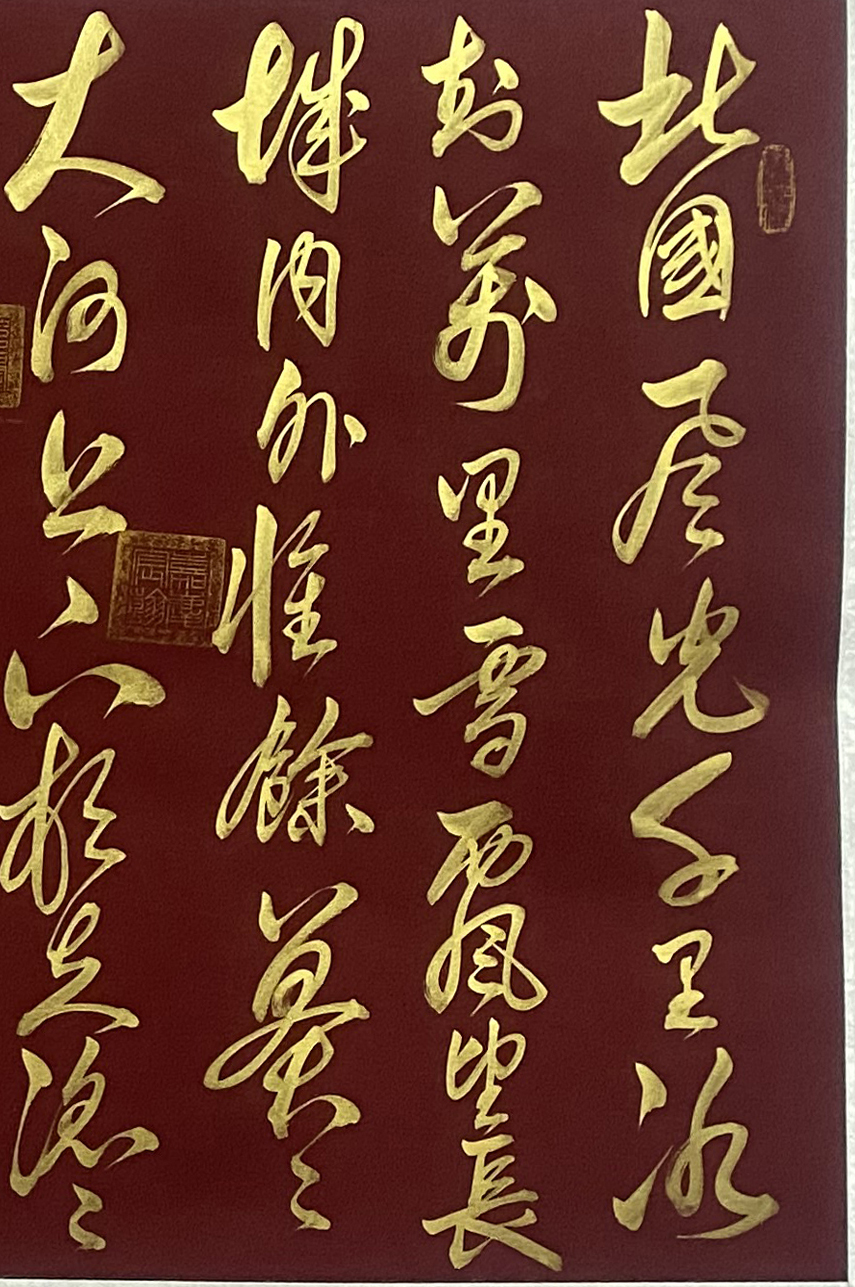 北國風光千里冰
封萬里雪飄望長
城内外惟餘莽々
大河上下頓失滔々